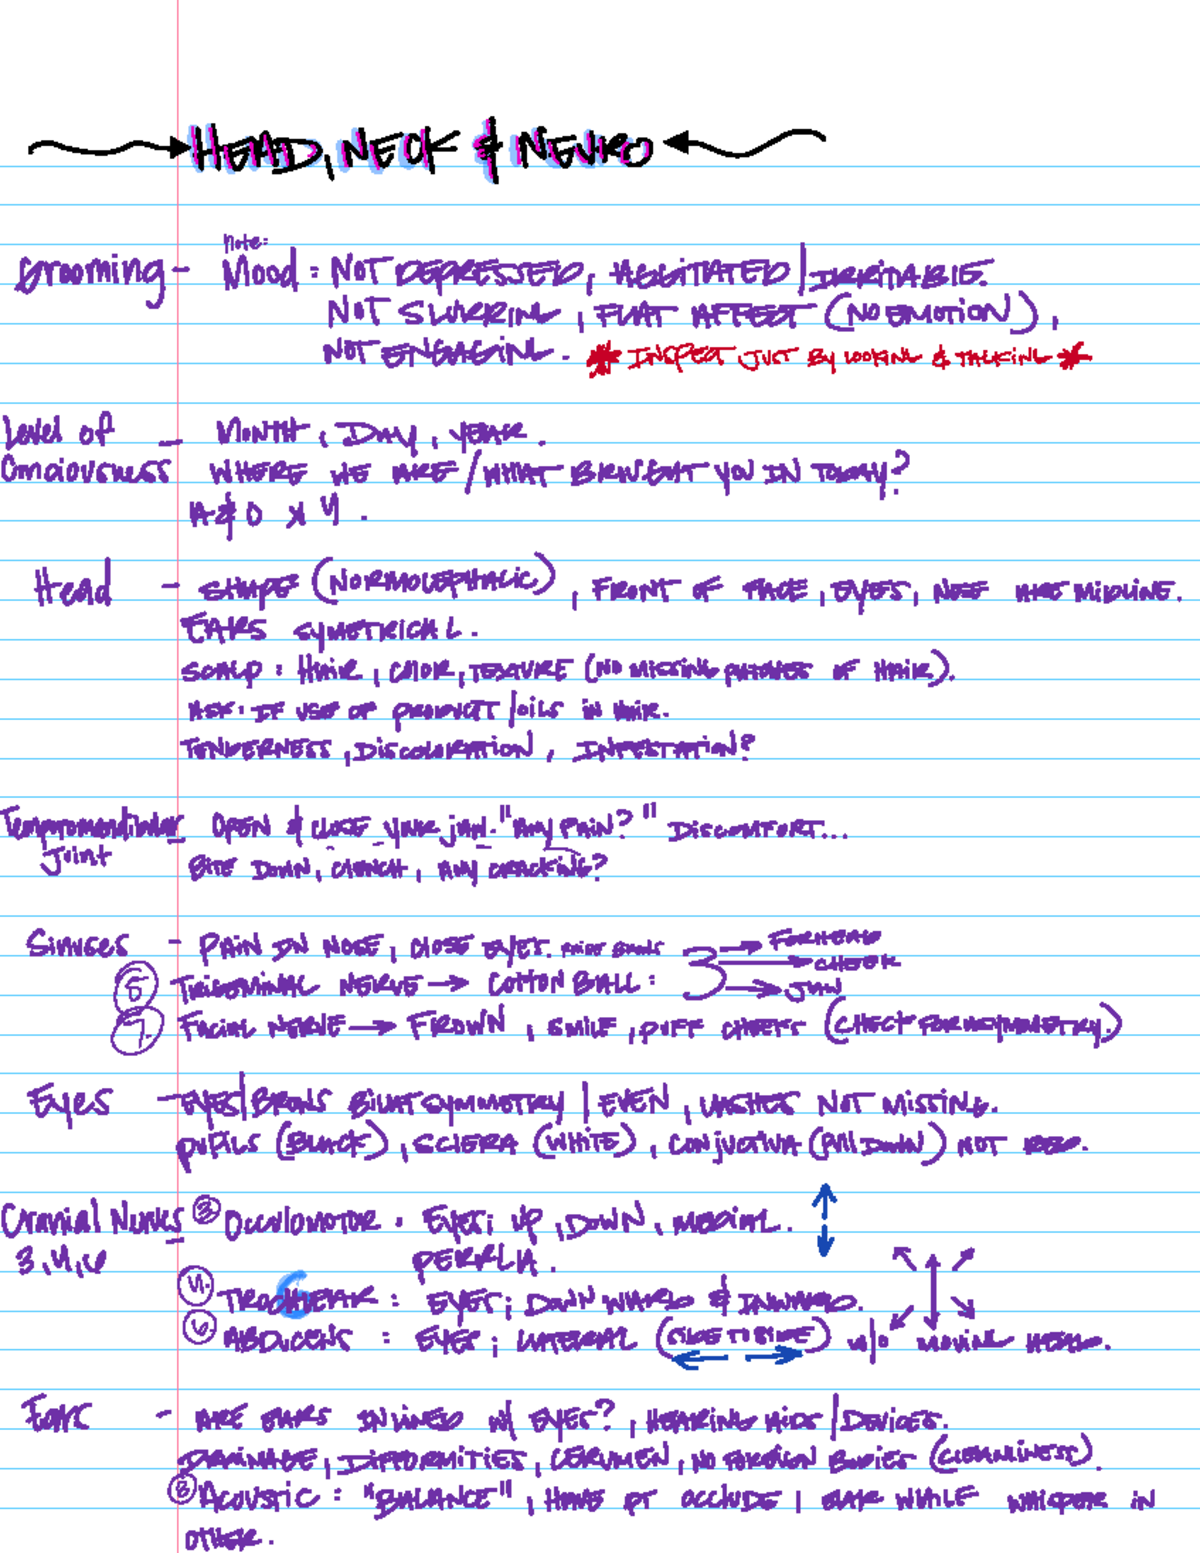 HEAD, NECK & NEURO
note:
Grooming - Mood: NOT DEPRESSED, AGGITATED | IRRITABLE.
NOT SLURRING, FLAT AFFECT (NO EMOTION),
NOT ENGAGING. * INSPECT JUST BY LOOKING & TALKING *
Level of - MONTH, DAY, YEAR.
Consciousness WHERE WE ARE / WHAT BROUGHT YOU IN TODAY?
A&O x 4.
Head - SHAPE (NORMOCEPHALIC), FRONT OF FACE, EYES, NOSE ARE MIDLINE.
EARS SYMETRICAL.
SCALP: HAIR, COLOR, TEXTURE (NO MISSING PATCHES OF HAIR).
ASK: IF USE OF PRODUCT/OILS IN HAIR.
TENDERNESS, DISCOLORATION, INFESTATION?
Tempromandibular - OPEN & CLOSE your jaw. "Any PAIN?" DISCOMFORT...
Joint BITE DOWN, CLENCH, ANY CRACKING?
Sinuses - PAIN IN NOSE, CLOSE EYES. → FORHEAD
→ CHEEK
⑤ TRIGEMINAL NERVE → COTTON BALL: 3 → JAW
⑦ FACIAL NERVE → FROWN, SMILE, PUFF CHEEKS (CHECK FOR ASYMMETRY.)
Eyes - EYES|BROWS BILAT SYMMETRY | EVEN, LASHES NOT MISSING.
PUPILS (BLACK), SCLERA (WHITE), CONJUCTIVA (PULL DOWN) NOT RED.
Cranial Nerves - ③ OCCULOMOTOR: EYES; UP, DOWN, MEDIAL.
3,4,6 PERRLA.
④ TROCHLEAR: EYES; DOWNWARD & INWARD.
⑥ ABDUCENS: EYES; LATERAL (SIDE TO SIDE) w/o MOVING HEAD.
Ears - ARE EARS IN LINED W/ EYES?, HEARING AIDS/DEVICES.
DRAINAGE, DIFFORMITIES, CERUMEN, NO FOREIGN BODIES (CLEANLINESS).
⑧ ACOUSTIC: "BALANCE", HAVE PT OCCLUDE 1 EAR WHILE WHISPER IN
OTHER.